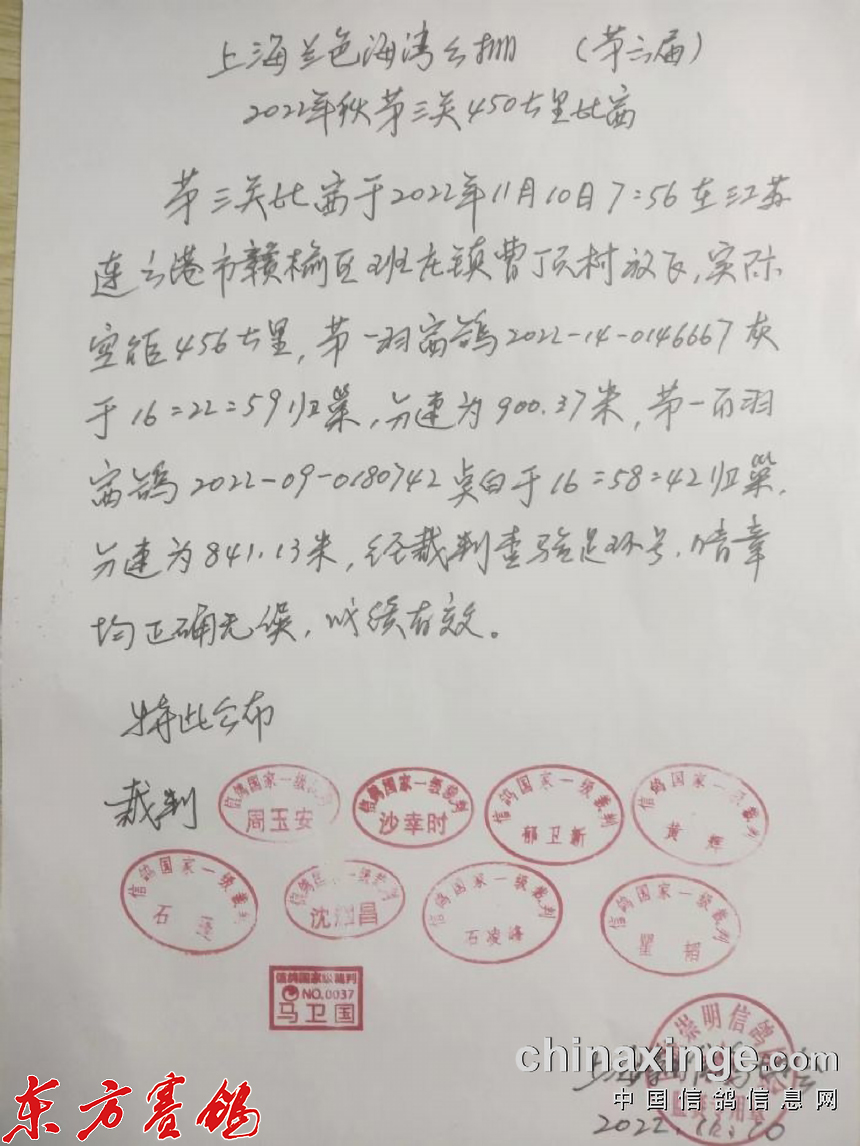 上海兰色海湾公棚 (第六届)
2022年秋第三关450公里比赛
第三关比赛于2022年11月10日7:56在江苏
连云港市赣榆区班庄镇曹顶村放飞,实际
空距456公里,第一羽赛鸽2022-14-0146667灰
于16:22:59归巢,分速为900.37米,第一百羽
赛鸽2022-09-0180742雨白于16:58:42归巢,
分速为841.13米,经裁判查验足环号、暗章
均正确无误,成绩有效。
特此公布
裁判
信鸽国家一级裁判 周玉安
信鸽国家一级裁判 沙幸时
信鸽国家一级裁判 郁卫新
信鸽国家一级裁判 黄辉
信鸽国家一级裁判 石
信鸽国家一级裁判 沈昌
信鸽国家一级裁判 石凌峰
信鸽国家一级裁判
信鸽国家级裁判
NO.0037
马卫国
崇明信鸽
chinaxinge.com
中国信鸽信息网
2022.11.10
东方赛鸽